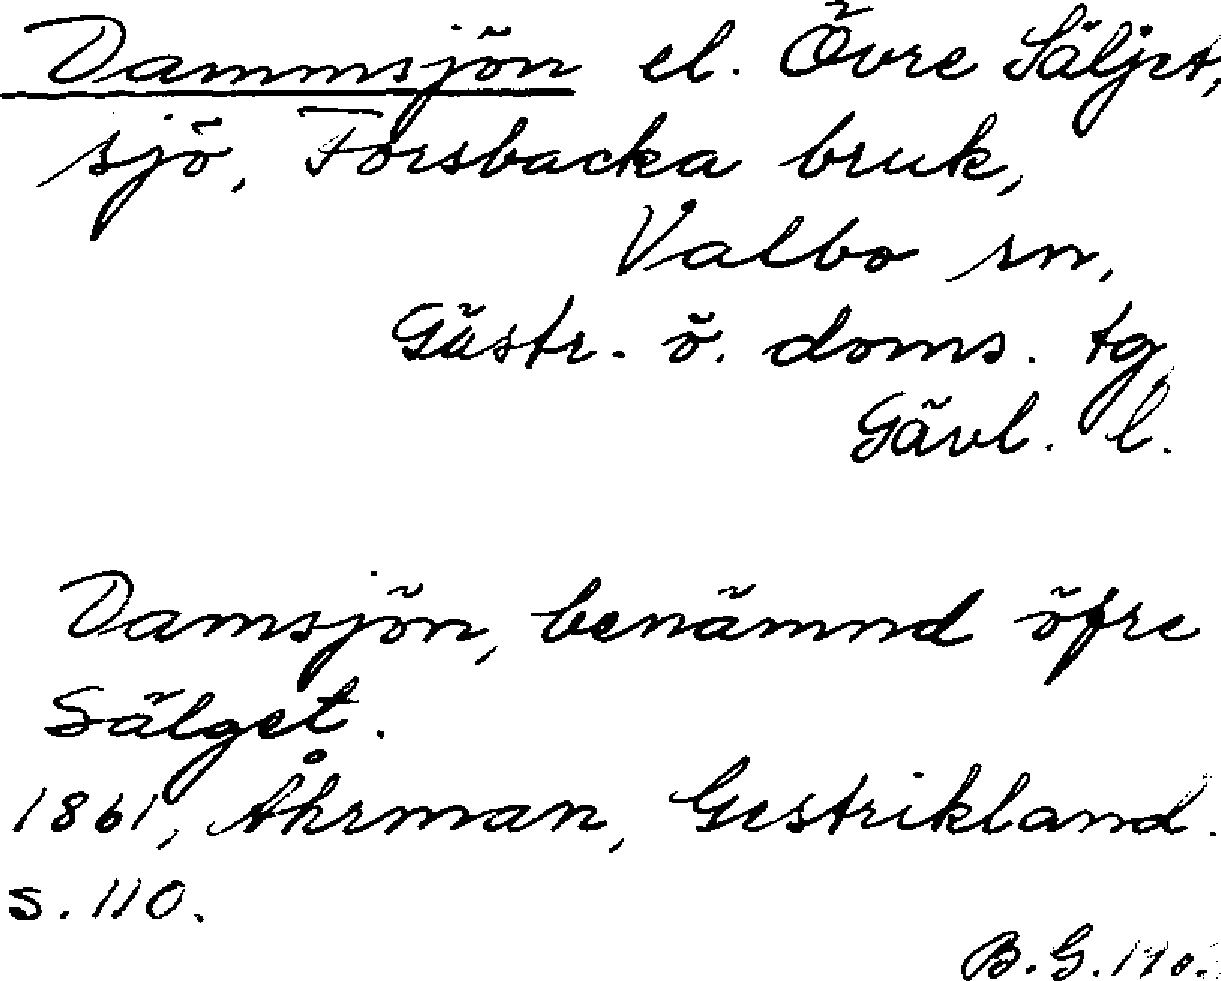 Dammsjön el. Övre Säljet,
sjö, Forsbacka bruk,
Valbo sn,
Gästr. ö. doms. tg
Gävl. l.
Damsjön, benämnd öfre
Sälget.
1861, Åhrman, Gestrikland.
s. 110.
B. G. 110.